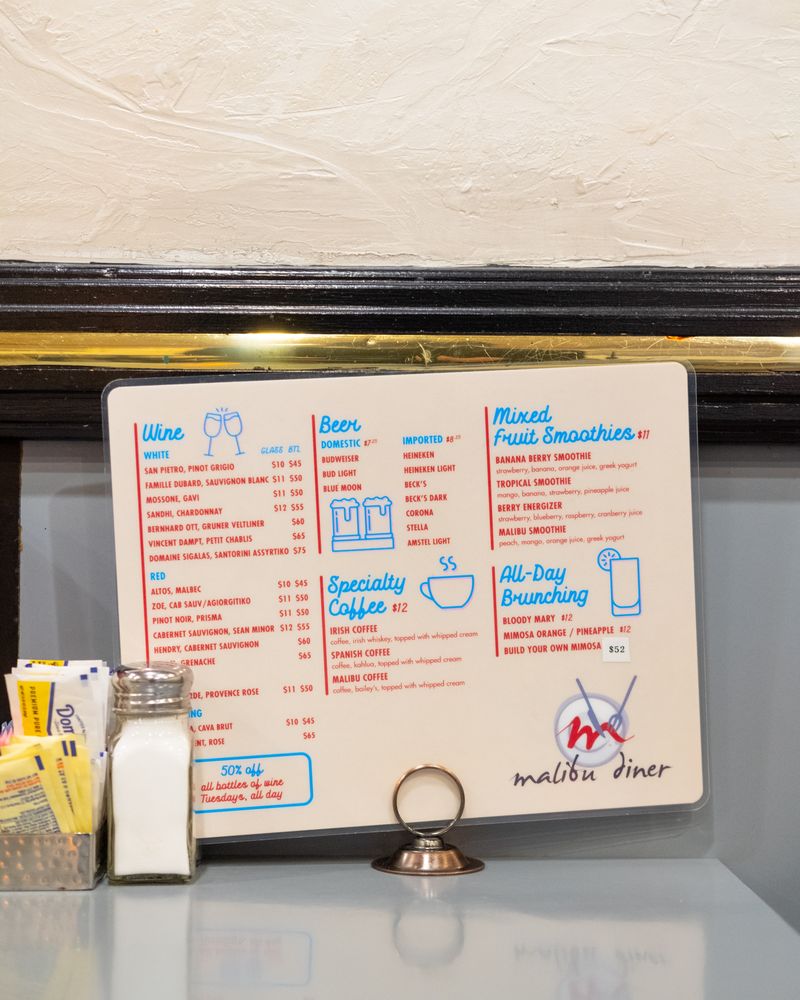 Wine
WHITE GLASS BTL
SAN PIETRO, PINOT GRIGIO $10 $45
FAMILLE DUBARD, SAUVIGNON BLANC $11 $50
MOSSONE, GAVI $11 $50
SANDHI, CHARDONNAY $12 $55
BERNHARD OTT, GRUNER VELTLINER $60
VINCENT DAMPT, PETIT CHABLIS $65
DOMAINE SIGALAS, SANTORINI ASSYRTIKO $75
RED
ALTOS, MALBEC $10 $45
ZOE, CAB SAUV/AGIORGITIKO $11 $50
PINOT NOIR, PRISMA $11 $50
CABERNET SAUVIGNON, SEAN MINOR $12 $55
HENDRY, CABERNET SAUVIGNON $60
GRENACHE $65
RDE, PROVENCE ROSE $11 $50
NG
A, CAVA BRUT $10 $45
ENT, ROSE $65
50% off
all bottles of wine
Tuesdays, all day
Beer
DOMESTIC $7
BUDWEISER
BUD LIGHT
BLUE MOON
IMPORTED $8
HEINEKEN
HEINEKEN LIGHT
BECK'S
BECK'S DARK
CORONA
STELLA
AMSTEL LIGHT
Specialty
Coffee $12
IRISH COFFEE
coffee, irish whiskey, topped with whipped cream
SPANISH COFFEE
coffee, kahlua, topped with whipped cream
MALIBU COFFEE
coffee, bailey's, topped with whipped cream
Mixed
Fruit Smoothies $11
BANANA BERRY SMOOTHIE
strawberry, banana, orange juice, greek yogurt
TROPICAL SMOOTHIE
mango, banana, strawberry, pineapple juice
BERRY ENERGIZER
strawberry, blueberry, raspberry, cranberry juice
MALIBU SMOOTHIE
peach, mango, orange juice, greek yogurt
All-Day
Brunching
BLOODY MARY $12
MIMOSA ORANGE / PINEAPPLE $12
BUILD YOUR OWN MIMOSA $52
m
malibu diner
PREMIUM PURE
Dom